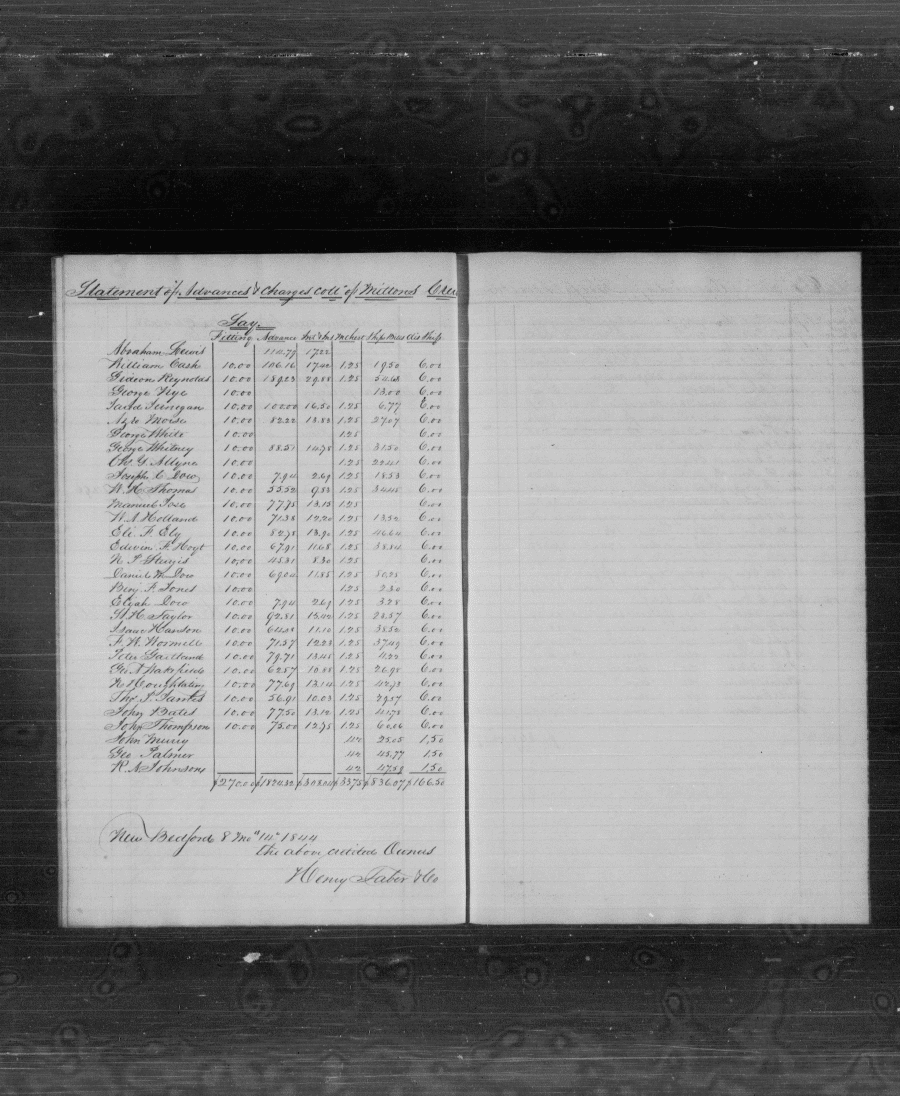 Statement of Advances & Charges coll of Miltons Crew
Say.
Fitting Advance Int & Ins M Chest Ships Bills Dis Ship
Abraham Lewis 17.22
William Cash 10.00 106.16 17.42 1.25 19.50 6.00
Gideon Reynolds 10.00 189.23 29.88 1.25 6.00
George Nye 10.00 13.00 6.00
Finnegan 10.00 100.00 16.50 1.25 6.77 6.00
Morse 10.00 82.22 13.83 1.25 27.07 6.00
George White 10.00 1.25 6.00
George Whitney 10.00 88.51 14.78 1.25 31.50 6.00
Allyne 10.00 1.25 22.41 6.00
Joseph C Dow 10.00 7.94 2.69 1.25 18.53 6.00
W. H. Thomas 10.00 55.52 9.83 1.25 6.00
Manuel Jose 10.00 77.75 13.15 1.25 6.00
W. A Holland 10.00 71.38 12.20 1.25 13.52 6.00
Eli. F. Ely 10.00 82.78 13.92 1.25 46.64 6.00
Edwin F. Hoyt 10.00 67.91 11.68 1.25 38.84 6.00
Sturgis 10.00 45.31 8.30 1.25 6.00
Daniel M. Dow 10.00 69.04 11.85 1.25 80.25 6.00
Benj. F. Jones 10.00 1.25 2.30 6.00
Elijah Dow 10.00 7.94 2.69 1.25 3.28 6.00
H. Taylor 10.00 92.81 15.42 1.25 6.00
Isaac Hanson 10.00 11.10 1.25 38.52 6.00
F. W. Wormell 10.00 71.57 12.23 1.25 37.49 6.00
Peter Gartland 10.00 79.71 13.45 1.25 4.22 6.00
Geo. A Wakefield 10.00 62.57 10.88 1.25 26.98 6.00
N Houghtaling 10.00 77.69 13.14 1.25 42.73 6.00
10.00 56.91 10.03 1.25 29.57 6.00
John Bates 10.00 77.50 13.12 1.25 6.00
John Thompson 10.00 75.00 12.75 1.25 60.06 6.00
John 42 25.05 1.50
Geo Palmer 42 45.77 1.50
R. A Johnson 42 47.59 1.50
$270.00 $1824.32 $308.04 $33.75 $836.07 $166.50
New Bedford 8 Mo 14 1844
the above credited Owners
Henry Taber & Co